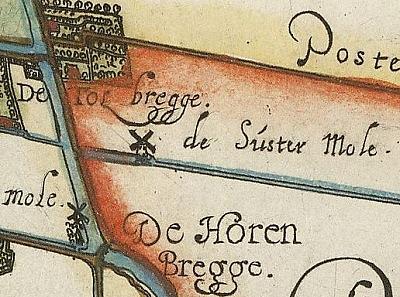 Poste
De Tol bregge.
de Súster Mole.
mole.
De Hòren
Bregge.